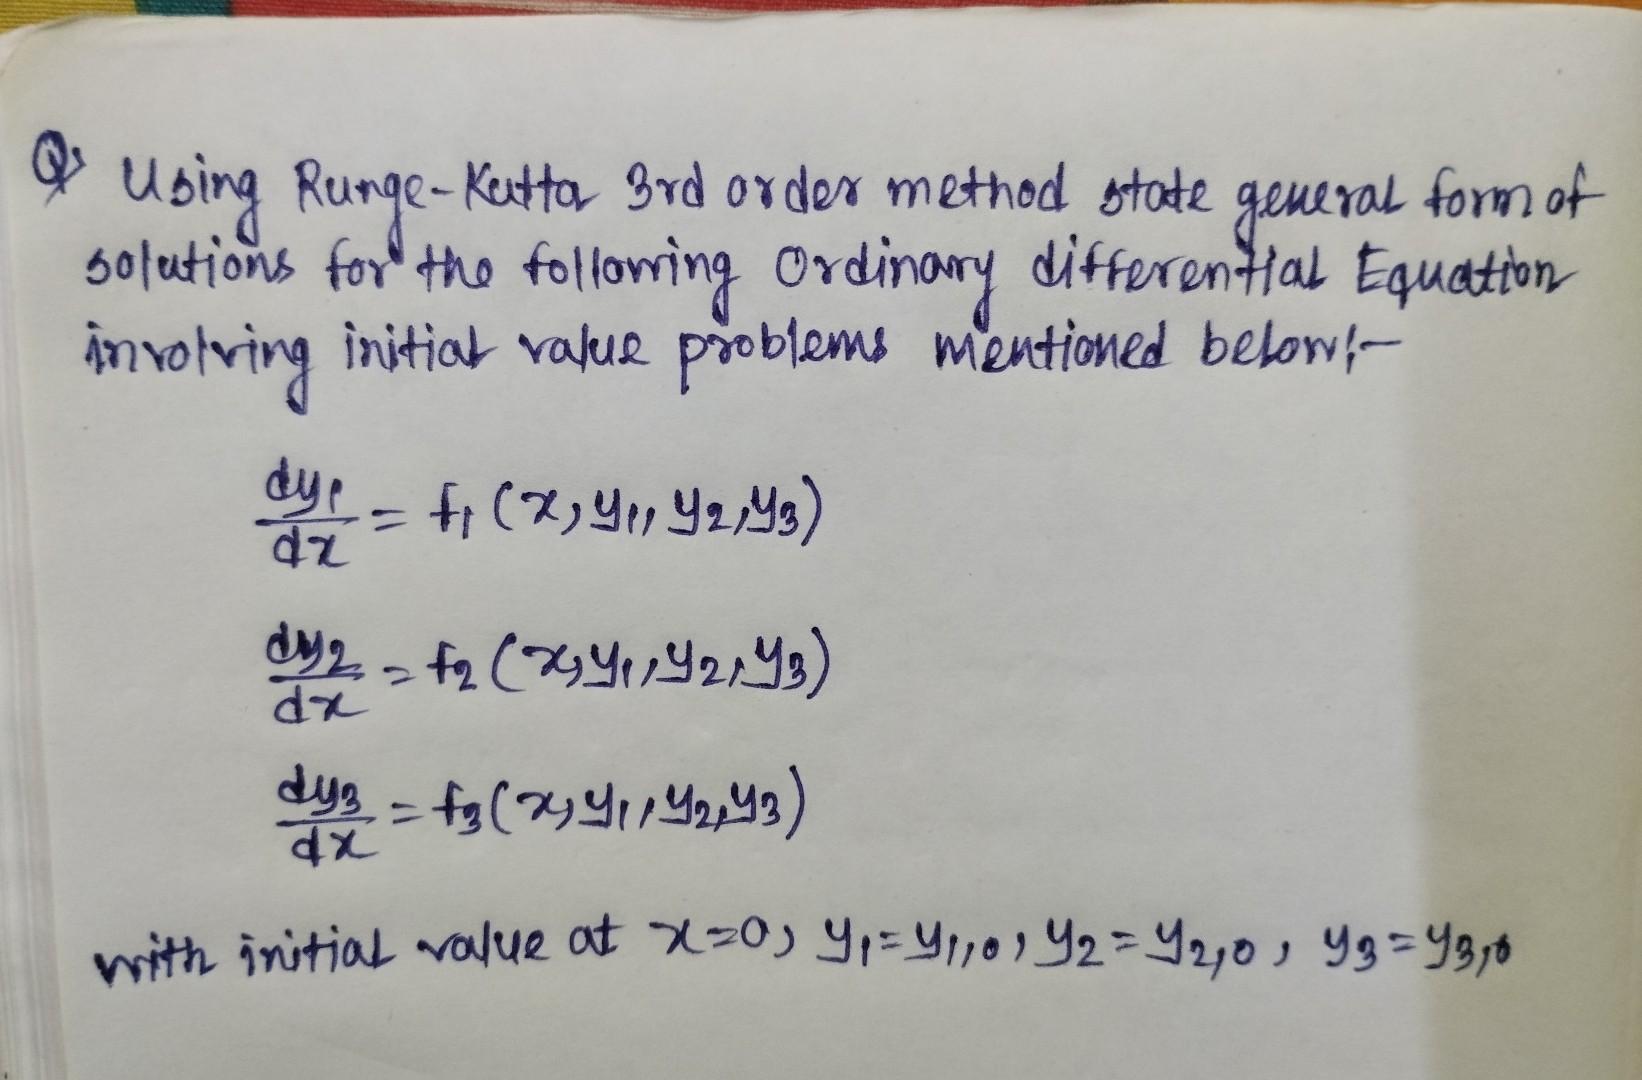 Q> Using Runge-Kutta 3rd order method state general form of
solutions for the following Ordinary differential Equation
involving initial value problems mentioned below:-
dy1/dx = f1 (x, y1, y2, y3)
dy2/dx = f2 (x, y1, y2, y3)
dy3/dx = f3 (x, y1, y2, y3)
with initial value at x=0, y1=y1,0, y2=y2,0, y3=y3,0